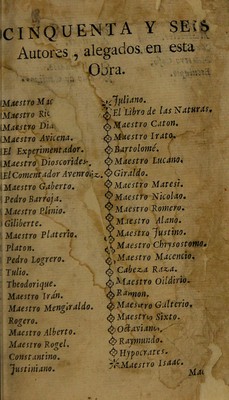 CINQUENTA Y SEIS
Autores, alegados en esta
Obra.
Maestro Mac
Maestro Ric
Maestro Dia
Maestro Avicena.
El Experimentador.
Maestro Dioscorides.
El Comentador Avenroiz.
Maestro Gaberto.
Pedro Barroja.
Maestro Plinio.
Gilberte.
Maestro Platerio.
Platon.
Pedro Logrero.
Tulio.
Theodorique.
Maestro Irán.
Maestro Mengiraldo.
Rogero.
Maestro Alberto.
Maestro Rogel.
Constantino.
Justiniano.
Juliano.
El Libro de las Naturas.
Maestro Caton.
Maestro Irato.
Bartolomé.
Maestro Lucano.
Giraldo.
Maestro Matesi.
Maestro Nicolao.
Maestro Romero.
Maestro Alano.
Maestro Justino.
Maestro Chrysostomo.
Maestro Macencio.
Cabeza Raza.
Maestro Oildirio.
Ramon.
Maestro Galterio.
Maestro Sixto.
Octaviano.
Raymundo.
Hypocrates.
Maestro Isaac.